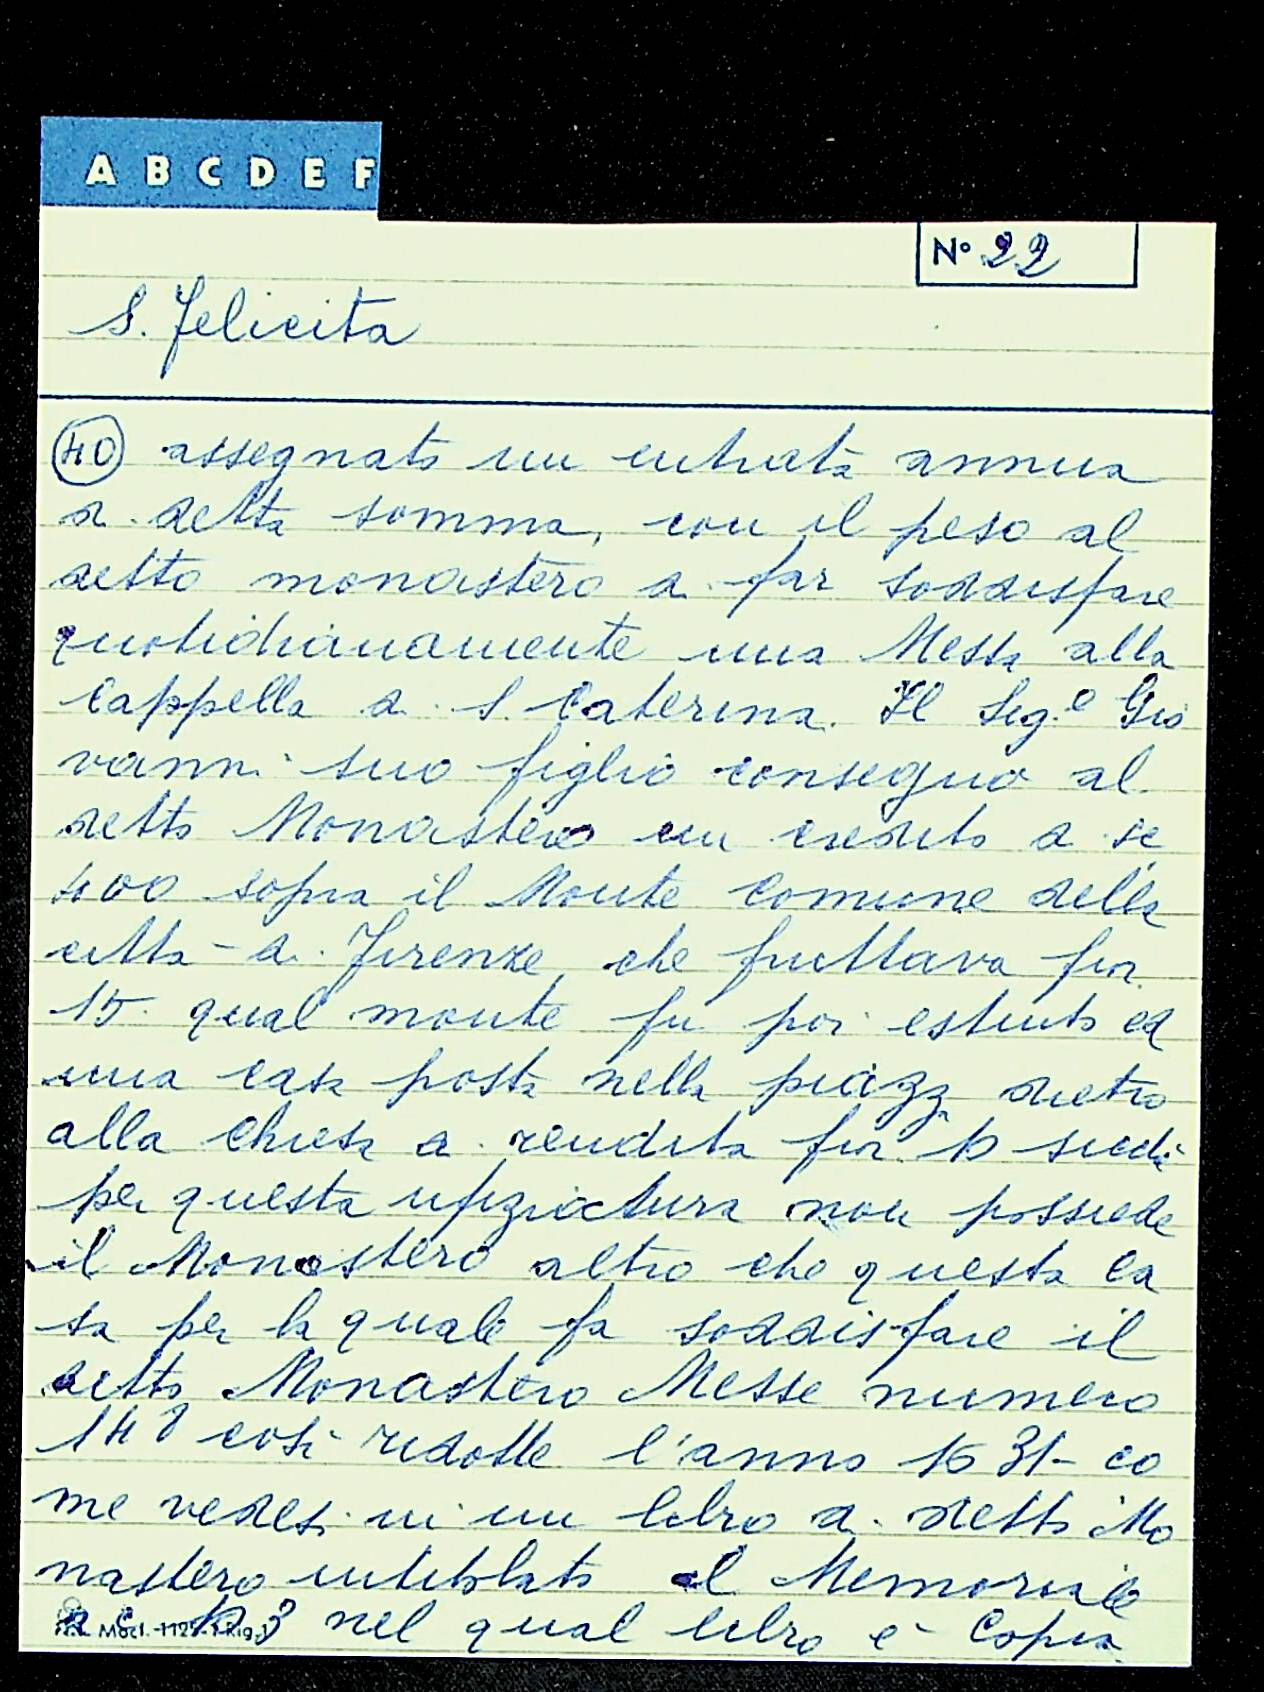 A B C D E F
Nº 22
S. Felicita
(40) assegnato un entrata annua
di detta somma, con il peso al
detto monastero di far soddisfare
quotidianamente una Messa alla
Cappella di S. Caterina. Il Sig.e Gio
vanni suo figlio consegnò al
detto Monastero un credito di sc
400 sopra il Monte Comune della
città di Firenze che fruttava fior.
15. qual monte fu poi estinto ed
una casa posta nella piazza dietro
alla chiesa di rendita fior. 16 sicchè
per questa ufiziatura non possiede
il Monastero altro che questa ca
sa per la quale fa soddisfare il
detto Monastero Messe numero
148 così ridotte l'anno 1631 - co
me vedesi in un libro di detto Mo
nastero intitolato il Memoriale
nel qual libro è Copia